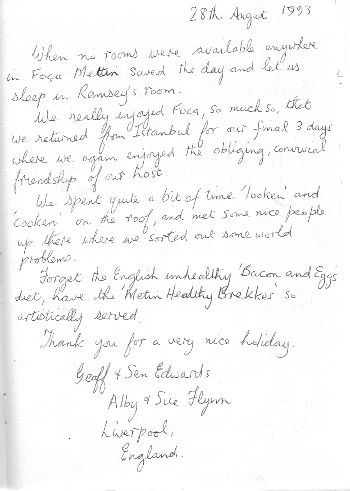 28th August 1993
When no rooms were available anywhere
in Foça Mettin saved the day and let us
sleep in Ramsey's room.
We really enjoyed Foca, so much so, that
we returned from Istanbul for our final 3 days
where we again enjoyed the obliging, convivial
friendship of our host
We spent quite a bit of time 'looken' and
'cooken' on the roof, and met some nice people
up there where we sorted out some world
problems.
Forget the English unhealthy 'Bacon and Eggs'
diet, have the 'Metin Healthy Brekkes' so
artistically served.
Thank you for a very nice holiday.
Geoff & Sen Edwards
Alby & Sue Flynn
Liverpool,
England.